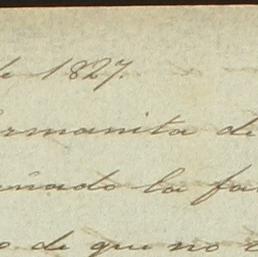 de 1827.
ermanita de
ñado la fa
o de que no